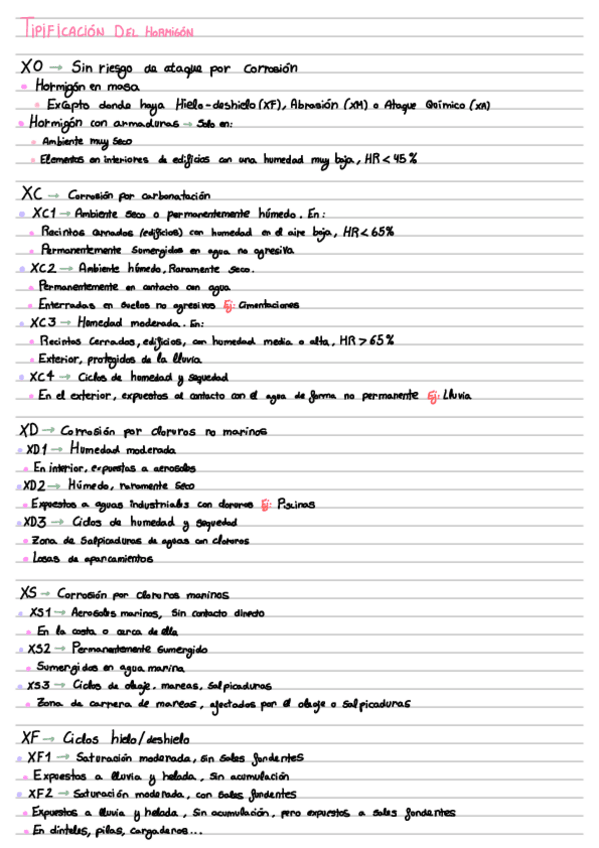 TIPIFICACIÓN DEL HORMIGÓN
XO → Sin riesgo de ataque por corrosión
• Hormigón en masa
• Excepto donde haya Hielo-deshielo (XF), Abrasión (XM) o Ataque Químico (XA)
• Hormigón con armaduras → Solo en:
• Ambiente muy seco
• Elementos en interiores de edificios con una humedad muy baja, HR < 45%
XC → Corrosión por carbonatación
• XC1 → Ambiente seco o permanentemente húmedo. En:
• Recintos cerrados (edificios) con humedad en el aire baja, HR < 65%
• Permanentemente sumergidos en agua no agresiva
• XC2 → Ambiente húmedo, Raramente seco.
• Permanentemente en contacto con agua
• Enterradas en suelos no agresivos Ej: Cimentaciones
• XC3 → Humedad moderada. En:
• Recintos Cerrados, edificios, con humedad media o alta, HR > 65%
• Exterior, protegidos de la lluvia
• XC4 → Ciclos de humedad y sequedad
• En el exterior, expuestos al contacto con el agua de forma no permanente Ej: Lluvia
XD → Corrosión por cloruros no marinos
• XD1 → Humedad moderada
• En interior, expuestas a aerosoles
• XD2 → Húmedo, raramente seco
• Expuestos a aguas industriales con cloruros Ej: Piscinas
• XD3 → Ciclos de humedad y sequedad
• Zona de Salpicaduras de aguas con cloruros
• Losas de aparcamientos
XS → Corrosión por cloruros marinos
• XS1 → Aerosoles marinos, Sin contacto directo
• En la costa o cerca de ella
• XS2 → Permanentemente sumergido
• Sumergidos en agua marina
• XS3 → Ciclos de oleaje, mareas, salpicaduras
• Zona de carrera de mareas, afectados por el oleaje o salpicaduras
XF → Ciclos hielo/deshielo
• XF1 → Saturación moderada, sin sales fundentes
• Expuestos a lluvia y helada, sin acumulación
• XF2 → Saturación moderada, con sales fundentes
• Expuestos a lluvia y helada, Sin acumulación, pero expuestos a sales fundentes
• En dinteles, pilas, cargaderos...